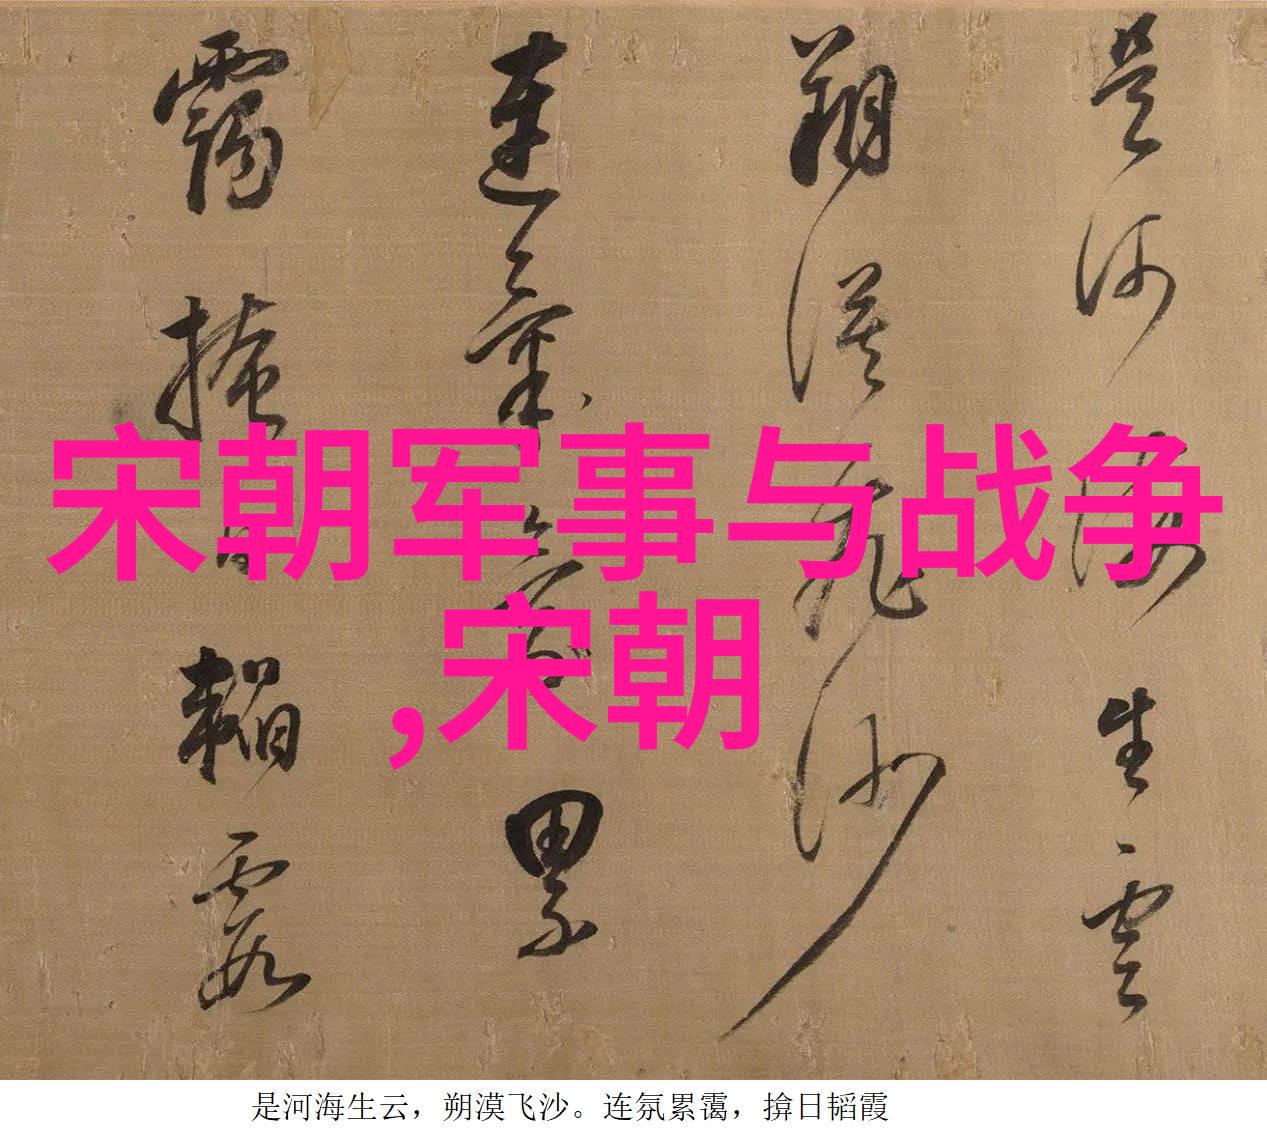 是河海生雲
朔漠飛沙
連氛累
靄掩日韜霞
宋朝军事与战争
,宋朝
是河海生云，朔漠飞沙。连氛累霭，揜日韬霞